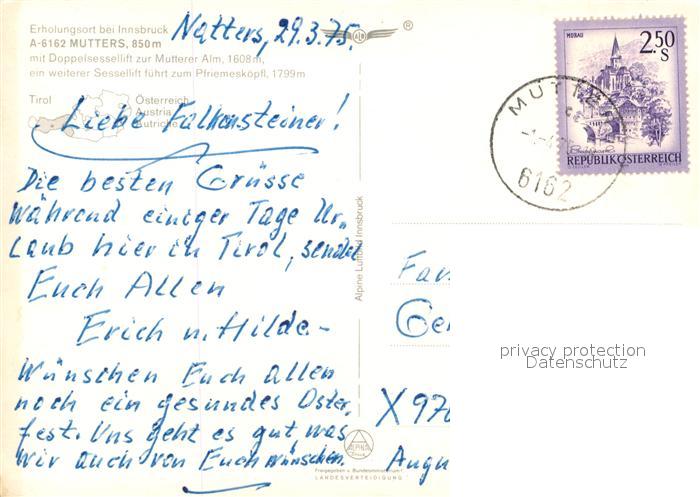 Erholungsort bei Innsbruck
A-6162 MUTTERS, 850m
mit Doppelsessellift zur Mutterer Alm, 1608m,
ein weiterer Sessellift führt zum Pfriemesköpfl, 1799m
Tirol
Österreich
Austria
Autriche
ALM
®
Natters, 29.3.75.
Liebe Falkensteiner!
Die besten Grüsse
während einiger Tage Ur„
laub hier in Tirol, sendet
Euch Allen
Erich u. Hilde -
Wünschen Euch allen
noch ein gesundes Oster,
fest. Uns geht es gut, was
wir auch von Euch wünschen.
Alpine Luftbild Innsbruck
ALPINE
Freigegeben v. Bundesministerium f.
LANDESVERTEIDIGUNG
MURAU
2.50
S
REPUBLIK ÖSTERREICH
MUTTERS
6162
Fam
Ger
X 970
Augu
privacy protection
Datenschutz